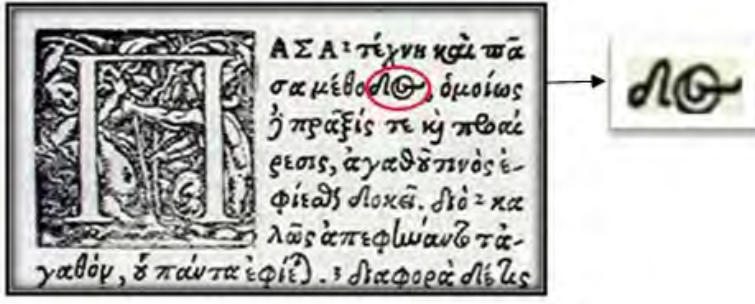 Π
ΑΣΑ ² τέχνη καὶ πᾶ
σα μέθοδος, ὁμοίως
δὲ πρᾶξίς τε καὶ προαί
ρεσις, ἀγαθοῦ τινὸς ἐ-
φίεσθαι δοκεῖ. διὸ ² κα
λῶς ἀπεφήναντο τἀ-
γαθόν, οὗ πάντα ἐφίεται. ³ διαφορὰ δέ τις
δος